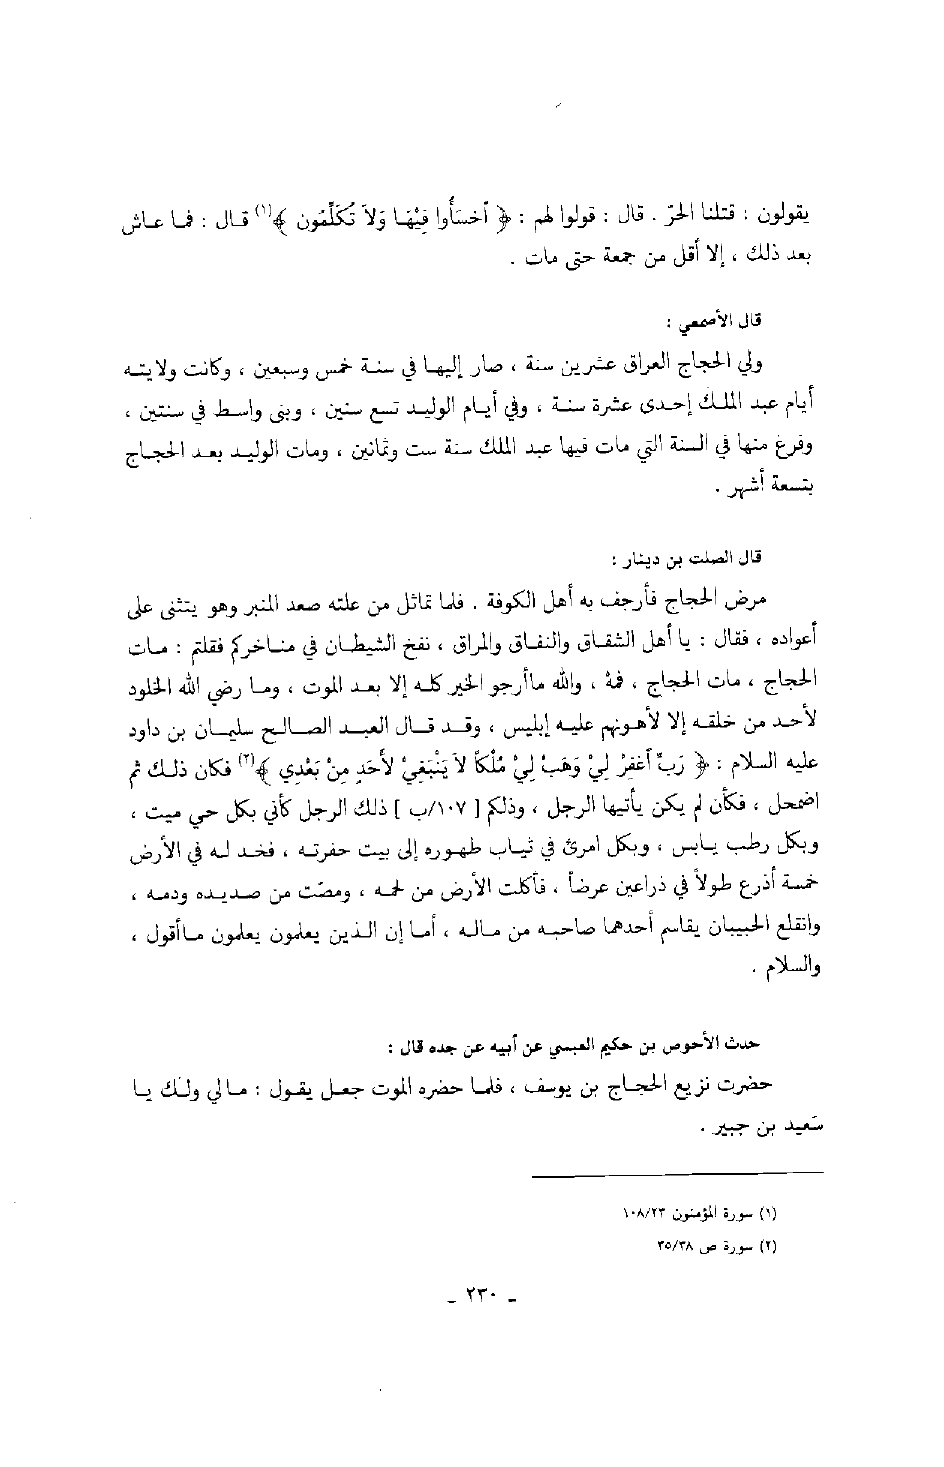 يقولون : قتلنا الحرّ . قال : قولوا لهم : ﴿ أخسَأُوا فِيْهَا وَلاَ تُكَلِّمُون ﴾(١) قال : فما عاش
بعد ذلك ، إلا أقل من جمعة حتى مات .
قال الأصمعي :
ولي الحجاج العراق عشرين سنة ، صار إليها في سنة خمس وسبعين ، وكانت ولايته
أيام عبد الملك إحدى عشرة سنة ، وفي أيام الوليد تسع سنين ، وبنى واسط في سنتين ،
وفرغ منها في السنة التي مات فيها عبد الملك سنة ست وثمانين ، ومات الوليد بعد الحجاج
بتسعة أشهر .
قال الصلت بن دينار :
مرض الحجاج فأرجف به أهل الكوفة . فلما تماثل من علته صعد المنبر وهو يتثنى على
أعواده ، فقال : يا أهل الشقاق والنفاق والمراق ، نفخ الشيطان في مناخركم فقلتم : مات
الحجاج ، مات الحجاج ، فمهْ ، والله ماأرجو الخير كله إلا بعد الموت ، وما رضي الله الخلود
لأحد من خلقه إلا لأهونهم عليه إبليس ، وقد قال العبد الصالح سليمان بن داود
عليه السلام : ﴿ رَبِّ أغفِرْ لِيْ وَهَبْ لِيْ مُلْكَاً لاَ يَنْبَغِيْ لأحَدٍ مِنْ بَعْدِي ﴾(٢) فكان ذلك ثم
اضمحل ، فكأن لم يكن يأتيها الرجل ، وذلكم [ ١٠٧/ب ] ذلك الرجل كأني بكل حي ميت ،
وبكل رطب يابس ، وبكل امرئ في ثياب طهوره إلى بيت حفرته ، فخد له في الأرض
خمسة أذرع طولاً في ذراعين عرضاً ، فأكلت الأرض من لحمه ، ومصّت من صديده ودمه ،
وانقلع الحبيبان يقاسم أحدهما صاحبه من ماله ، أما إن الذين يعلمون يعلمون ماأقول ،
والسلام .
حدث الأحوص بن حكيم العبسي عن أبيه عن جده قال :
حضرت نزيع الحجاج بن يوسف ، فلما حضره الموت جعل يقول : مالي ولك يا
سَعيد بن جبير .
(١) سورة المؤمنون ١٠٨/٢٣
(٢) سورة ص ٣٥/٣٨
ـ ٢٣٠ ـ